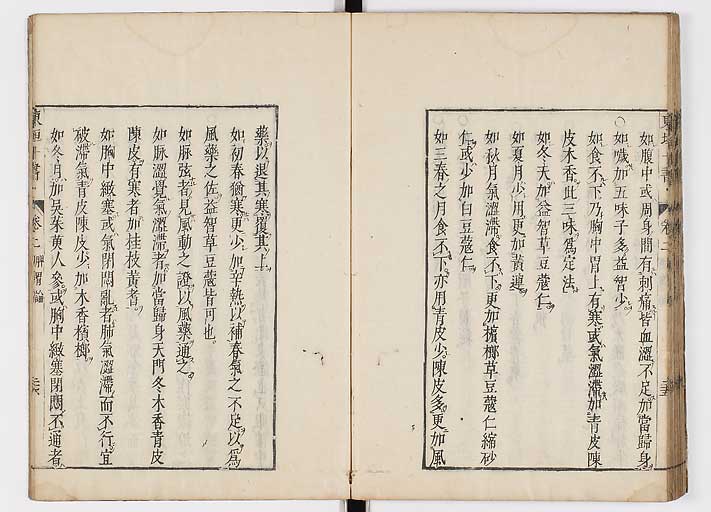 如腹中或周身間有刺痛皆血澀不足加當歸身
如噦加五味子多益智少
如食不下乃胸中胃上有寒或氣澀滯加青皮陳
皮木香此三味爲定法
如冬天加益智草豆蔻仁
如夏月少用更加黃連
如秋月氣澀滯食不下更加檳榔草豆蔻仁縮砂
仁或少加白豆蔻仁
如三春之月食不下亦用青皮少陳皮多更加風
藥以退其寒覆其上
如初春猶寒更少加辛熱以補春氣之不足以爲
風藥之佐益智草豆蔻皆可也
如脉弦者見風動之證以風藥通之
如脉澀覺氣澀滯者加當歸身天門冬木香青皮
陳皮有寒者加桂枝黃耆
如胸中緻塞或氣閉悶亂者肺氣澀滯而不行宜
破滯氣青皮陳皮少加木香檳榔
如冬月加吳茱萸人參或胸中緻塞閉悶不通者
東垣十書
卷二
脾胃論